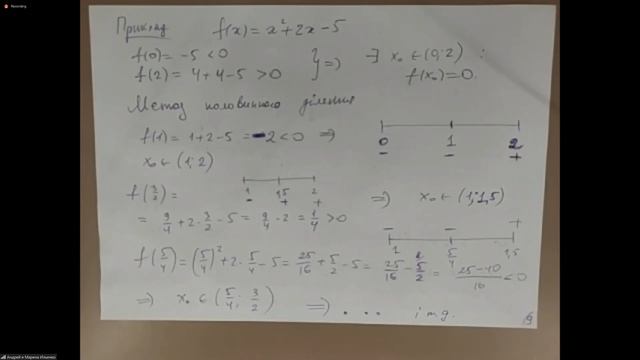 Recording
Приклад f(x) = x² + 2x - 5
f(0) = -5 < 0
f(2) = 4 + 4 - 5 > 0 } => ∃ x₀ ∈ (0; 2) : f(x₀) = 0.
Метод половинного ділення
f(1) = 1 + 2 - 5 = -2 < 0 =>
0 1 2
- - +
x₀ ∈ (1; 2)
1 1,5 2
- + +
f(3/2) =
= 9/4 + 2 · 3/2 - 5 = 9/4 - 2 = 1/4 > 0
=> x₀ ∈ (1; 1,5)
- - +
1 5/4 1,5
f(5/4) = (5/4)² + 2 · 5/4 - 5 = 25/16 + 5/2 - 5 = 25/16 - 5/2 = (25-40)/16 < 0
=> x₀ ∈ (5/4; 3/2) => . . . і т.д.
Андрей и Марина Ильенко